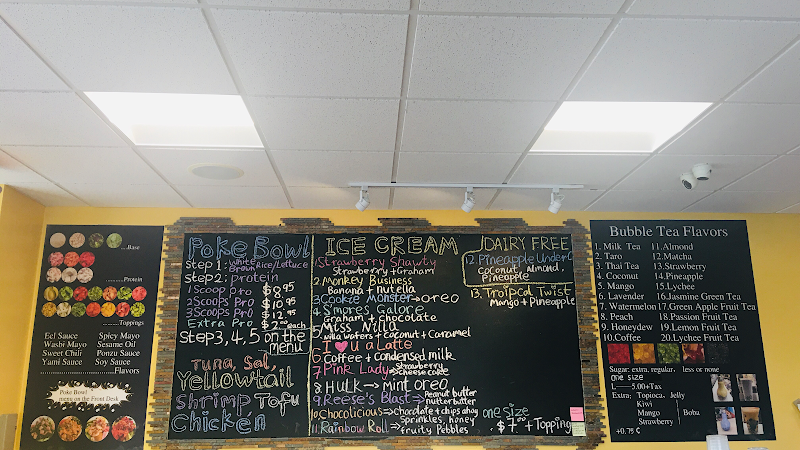 ...Base
...Protein
...Toppings
Eel Sauce Spicy Mayo
Wasbi Mayo Sesame Oil
Sweet Chili Ponzu Sauce
Yami Sauce Soy Sauce
...Flavors
Poke Bowl
menu on the Front Desk
Poke Bowl
Step 1: White Rice/Lettuce
Brown
Step 2: protein
1 Scoop Pro $8.95
2 Scoops Pro 10.95
3 Scoops Pro $12.95
Extra Pro $2.00 each
Step 3, 4, 5 on the
Menu
Tuna, Sal,
Yellowtail
Shrimp Tofu
Chicken
ICE CREAM
1. Strawberry Shawty
Strawberry + Graham
2. Monkey Business
Banana + nutella
3. Cookie Monster → oreo
4. S'mores Galore
Graham + chocolate
5. Miss Nilla
nilla wafers + Coconut + Caramel
6. I ♥ u a Latte
Coffee + condensed milk
7. Pink Lady → Strawberry
cheese cake
8. HULK → Mint oreo
9. Reese's Blast → Peanut butter
nutter butter
10. Chocolicious → chocolate + chips ahoy
11. Rainbow Roll → Sprinkles, honey
fruity Pebbles
DAIRY FREE
12. Pineapple Under C
coconut, almond,
pineapple
13. Tropical Twist
Mango + Pineapple
one size
$7.00 + Topping
Bubble Tea Flavors
1. Milk Tea 11.Almond
2. Taro 12.Matcha
3. Thai Tea 13.Strawberry
4. Coconut 14.Pineapple
5. Mango 15.Lychee
6. Lavender 16.Jasmine Green Tea
7. Watermelon 17.Green Apple Fruit Tea
8. Peach 18.Passion Fruit Tea
9. Honeydew 19.Lemon Fruit Tea
10.Coffee 20.Lychee Fruit Tea
Sugar: extra, regular, less or none
one size
5.00+Tax
Extra: Topioca, Jelly
Kiwi
Mango Boba
Strawberry
+0.75 ¢